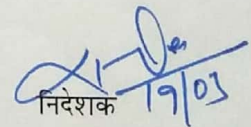 निदेशक 19/03